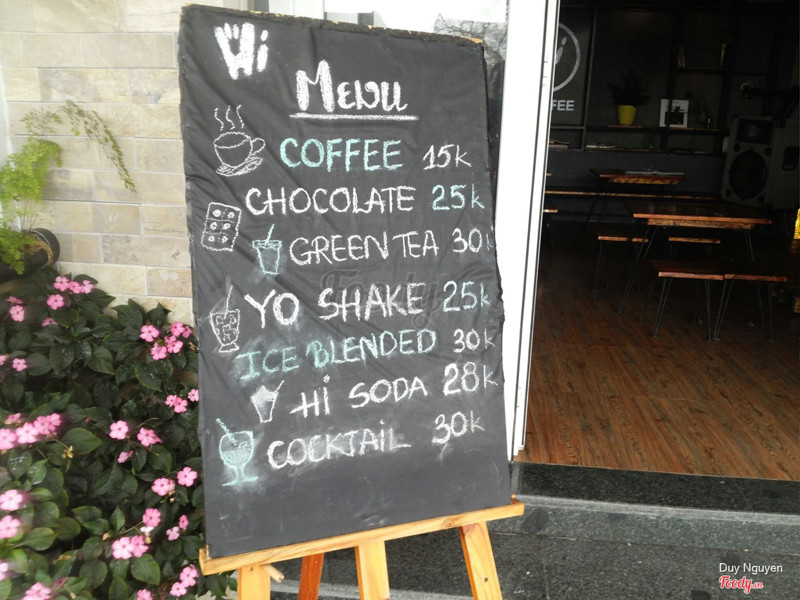 Hi
MENU
COFFEE 15K
CHOCOLATE 25K
GREEN TEA 30K
YO SHAKE 25K
ICE BLENDED 30K
Hi SODA 28K
COCKTAIL 30K
Duy Nguyen
Foody.vn